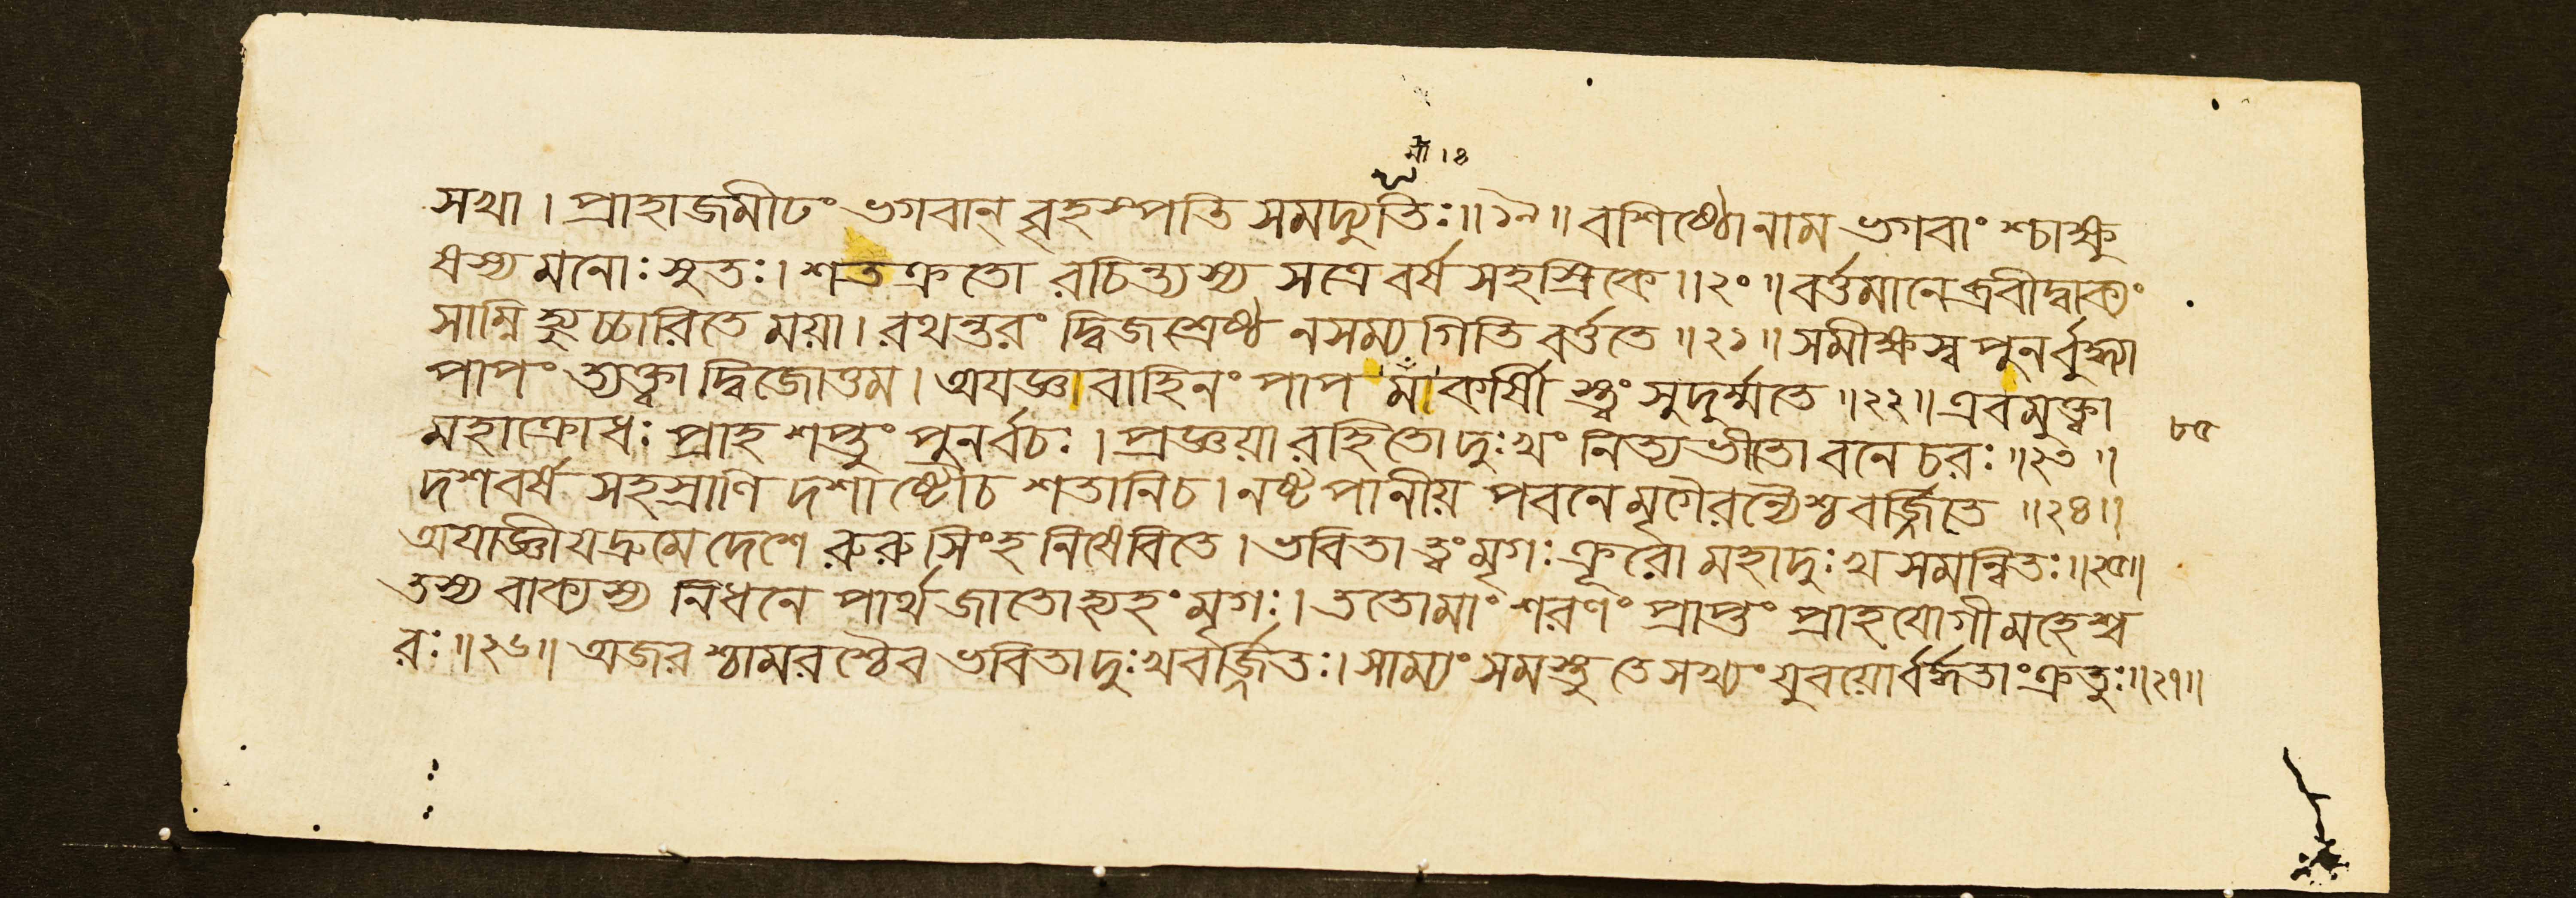 মা ৷ ৪
সখা । প্রাহাজমীঢং ভগবান্ বৃহস্পতি সমদ্যুতিঃ ॥ ১৯ ॥ বশিষ্ঠোনাম ভগবাংশ্চাক্ষু
ষস্য মনোঃ সুতঃ । শতক্রতো রচিন্ত্যস্য সত্রে বর্ষ সহস্রিকে ॥ ২০ ॥ বর্ত্তমানেব্রবীদ্বাক্যং
সাম্নি হ্যুচ্চারিতে ময়া । রথন্তরং দ্বিজশ্রেষ্ঠ নসম্যগিতি বর্ত্ততে ॥ ২১ ॥ সমীক্ষস্ব পুনর্বুদ্ধ্যা
পাপং ত্যক্ত্বা দ্বিজোত্তম । অযজ্ঞবাহিনং পাপ মাকর্ষী স্ত্বং সুদুর্ম্মতে ॥ ২২ ॥ এবমুক্ত্বা
মহাক্রোধঃ প্রাহ শপ্তুং পুনর্বচঃ । প্রজ্ঞয়া রহিতোদুঃখং নিত্যভীতো বনেচরঃ ॥ ২৩ ॥
৮৫
দশবর্ষ সহস্রাণি দশাষ্টৌচ শতানিচ । নষ্টপানীয় পবনে মৃগৈরন্যৈশ্চ বর্জ্জিতে ॥ ২৪ ॥
অযাজ্ঞীযদ্রুমে দেশে রুরুসিংহ নিষেবিতে । ভবিতা ত্বংমৃগঃ ক্রূরো মহাদুঃখ সমন্বিতঃ ॥ ২৫ ॥
তস্য বাক্যস্য নিধনে পার্থ জাতোহ্যহং মৃগঃ । ততোমাং শরণং প্রাপ্তং প্রাহযোগী মহেশ্ব
রঃ ॥ ২৬ ॥ অজরশ্চামরশ্চৈব ভবিতাদুঃখবর্জ্জিতঃ । সাম্যং সমস্তু তে সখ্যং যুবয়োর্বর্দ্ধতাং ক্রতুঃ ॥ ২৭ ॥